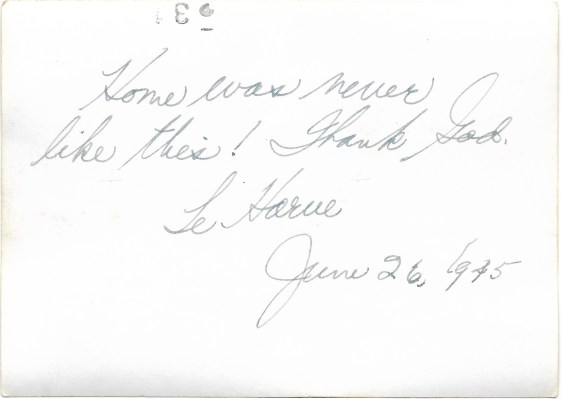 Home was never
like this! Thank God.
Le Harve
June 26, 1945